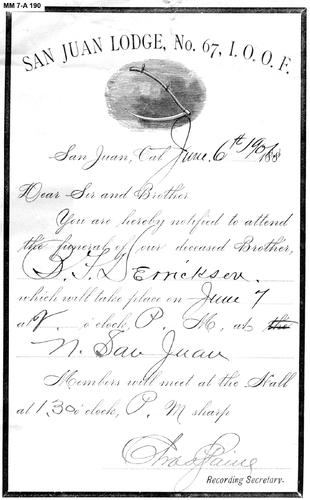 MM 7-A 190
SAN JUAN LODGE, No. 67, I. O. O. F.
San Juan, Cal June 6th 1901 188
Dear Sir and Brother
You are hereby notified to attend
the funeral of our deceased Brother,
Erricksen.
which will take place on June 7
at 2 o'clock, P. M., at the
N. San Juan
Members will meet at the Hall
at 1.30 o'clock, P. M sharp
Paine
Recording Secretary.